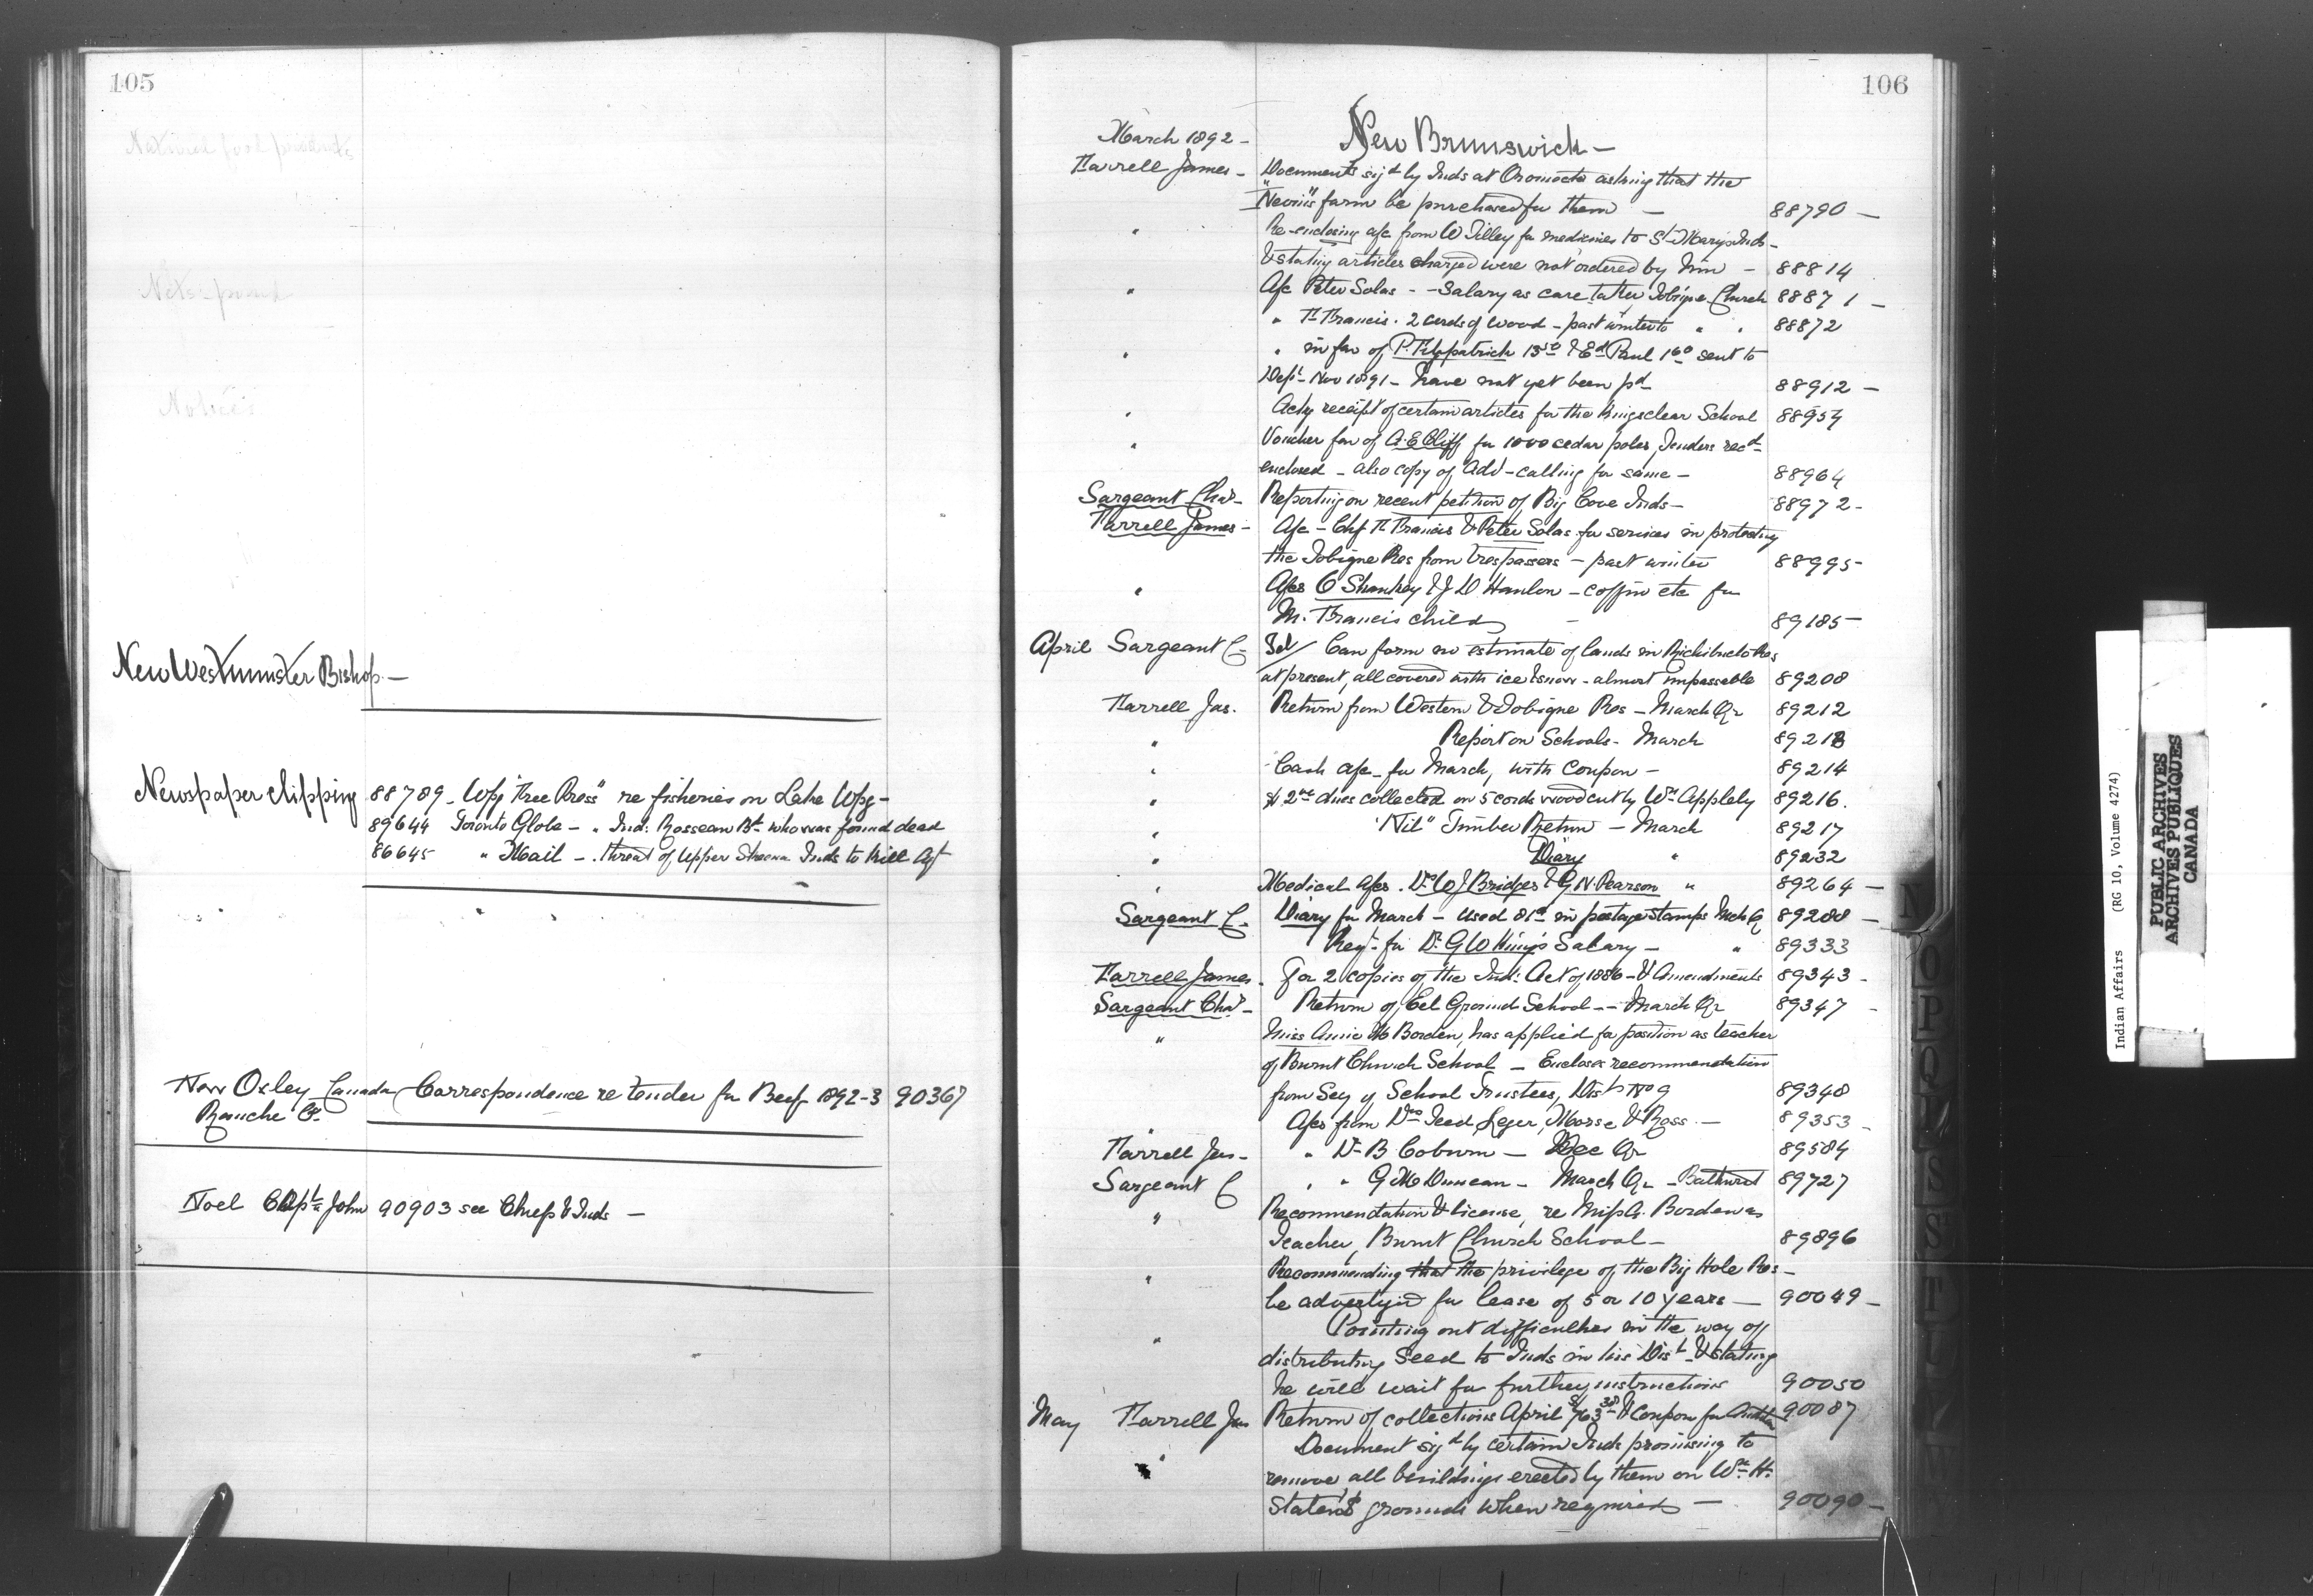 105
New Westminster Bishop —
Newspaper Clipping 88789 - Wpg "Free Press" re fisheries on Lake Wpg -
89644 Toronto Globe - " Ind: Rosseau Bt who was found dead
86645 " Mail - . threat of Upper Skeena Inds to kill Agt
New Oxley Canada Correspondence re tender for Beef 1892-3 90367
Ranche Co.
Noel Captn John 90903 see Chiefs & Inds —
106
March 1892 - New Brunswick —
Farrell James - Documents sigd by Inds at Oromocto asking that the
"Nevins" farm be purchased for them — 88790 —
" Re-enclosing a/c from W Tilley for medicines to St Marys Inds -
& stating articles charged were not ordered by him - 88814
" A/c Peter Solas - - Salary as care taker Tobique Church 88871 -
" Th Francis. 2 cords of wood - past winter to " " 88872
" " in fav of P. Fitzpatrick 13 50 & Ed Paul 1 60 sent to
Dept Nov 1891 - have not yet been pd 88912 —
" Ackg receipt of certain articles for the Kingsclear School 88954
" Voucher fav of A. E Cliff for 1000 cedar poles, Tenders recd
enclosed - also copy of Adv - calling for same - 88964
Sargeant Chas - Reporting on recent petition of Big Cove Inds - 88972 -
Farrell James - A/c - Chf Th Francis & Peter Solas for services in protecting
the Tobique Res from trespassers - past winter 88995 -
" A/cs O Sharkey & J D Hanlon - coffin etc for
M. Francis child - 89185 -
April Sargeant C - Tel/ Can form no estimate of lands in Richibucto Res
at present, all covered with ice & snow - almost impassable 89208
Farrell Jas. Return from Western & Tobique Res - March Qr 89212
" Report on Schools - March 89213
" Cash a/c - for March, with Coupon - 89214
" $2 00 dues collected on 5 cords wood cut by Wm Appleby 89216.
" "Nil" Timber Return - March 89217
" Diary " 89232
" Medical A/cs . Drs W J Bridges & G N. Pearson " 89264 —
Sargeant C - Diary for March - Used 81c in postage stamps Mch Qr 89288 —
Reqn for Dr G W King's Salary - " 89333
Farrell James . For 2 copies of the Ind: Act of 1886 - & Amendments 89343 -
Sargeant Chas - Return of Eel Ground School - - March Qr 89347 -
" Miss Annie M Borden, has applied for position as teacher
of Burnt Church School - Encloses recommendation
from Sey of School Trustees, Dist No 9 89348
" A/cs from Drs Leger, Morse & Ross. — 89353 -
Farrell Jas - " Dr B Coburn — Dec Qr 89584
Sargeant C " " G M Duncan - March Qr - Bathurst 89727
" Recommendation & license, re Miss A. Borden as
Teacher, Burnt Church School - 89896
" Recommending that the privilege of the Big Hole Res -
be advertised for lease of 5 or 10 years — 90049 -
" Pointing out difficulties in the way of
distributing Seed to Inds in his Dist & stating
he will wait for further instructions 90050
May Farrell Jas Return of collections April $763 38 & Coupon for 90087
" Document sigd by certain Inds promising to
remove all buildings erected by them on Wm H.
grounds when required — 90090 —
N O P Q R S T
Indian Affairs (RG 10, Volume 4274)
PUBLIC ARCHIVES
ARCHIVES PUBLIQUES
CANADA